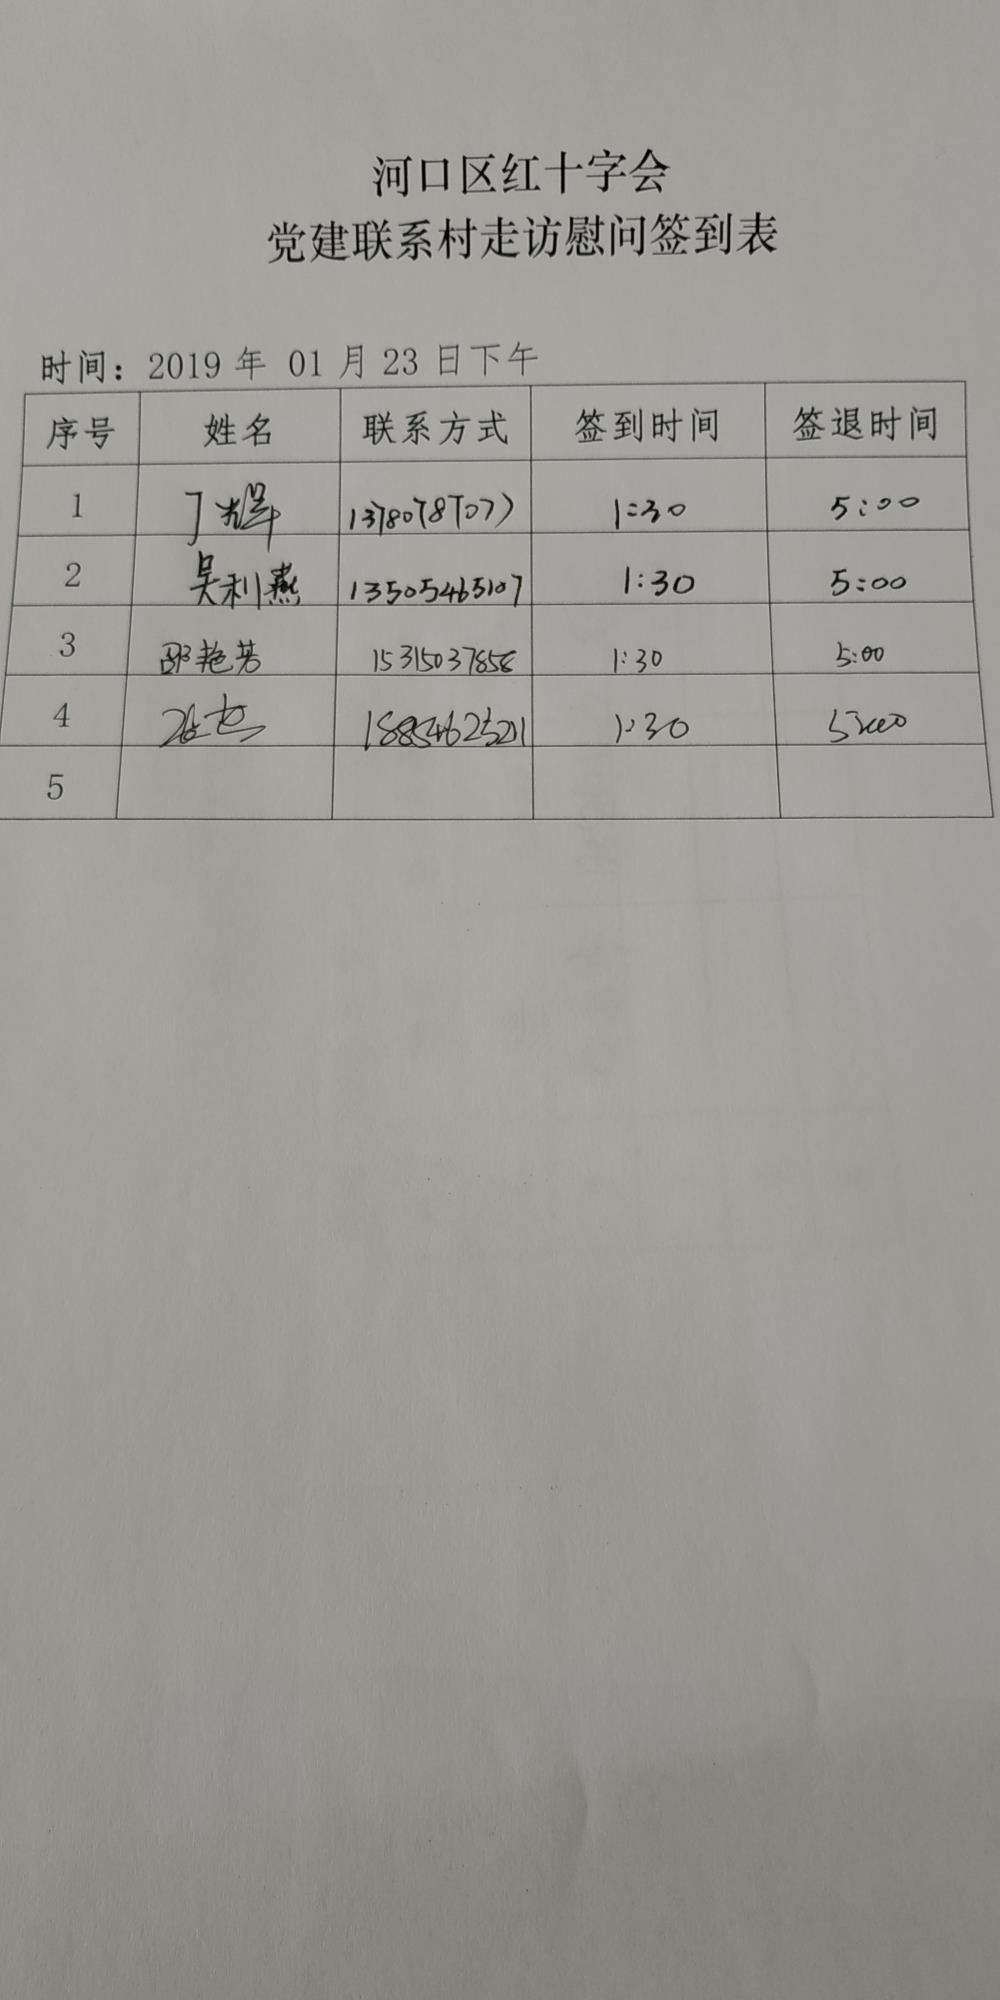 河口区红十字会
党建联系村走访慰问签到表
时间：2019 年 01 月 23 日下午
序号 姓名 联系方式 签到时间 签退时间
1 丁耀军 1:30 5:00
2 吴利燕 13505465107 1:30 5:00
3 邵艳芳 15315037856 1:30 5:00
4 18854625211 1:30 5:00
5